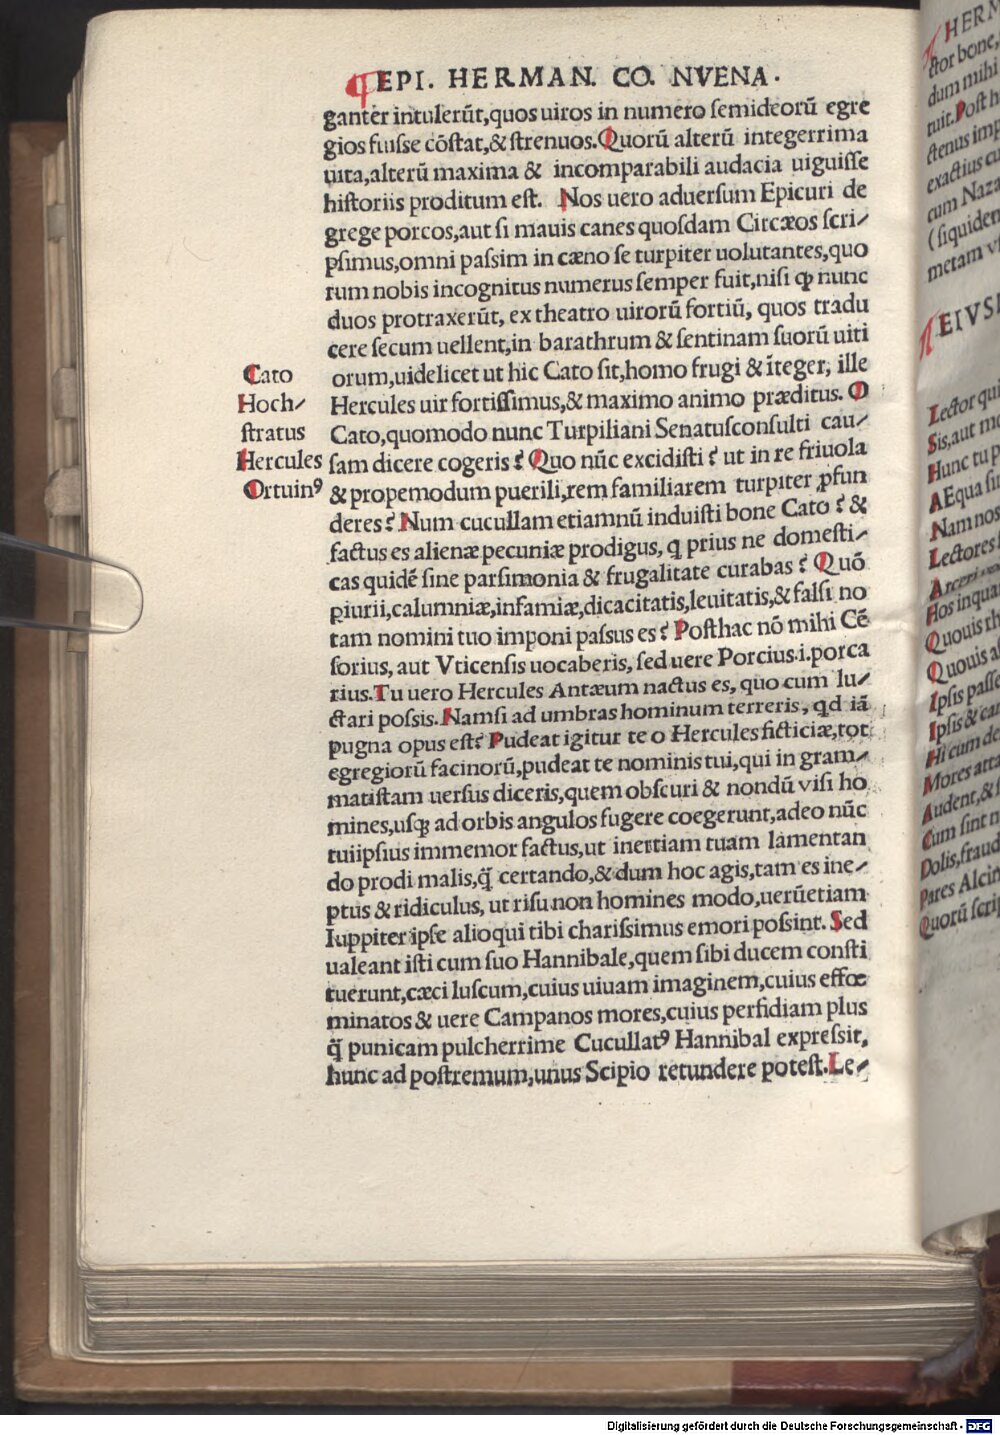 EPI. HERMAN. CO. NVENA.
ganter intulerūt,quos uiros in numero ſemideorū egre
gios fuiſſe cōſtat,& ſtrenuos.Quorū alterū integerrima
uita,alterū maxima & incomparabili audacia uiguiſſe
hiſtoriis proditum eſt. Nos uero aduerſum Epicuri de
grege porcos,aut ſi mauis canes quoſdam Circæos ſcri⸗
pſimus,omni paſsim in cæno ſe turpiter uolutantes,quo
rum nobis incognitus numerus ſemper fuit,niſi ꝙ nunc
duos protraxerūt, ex theatro uirorū fortiū, quos tradu
cere ſecum uellent,in barathrum & ſentinam ſuorū uiti
orum,uidelicet ut hic Cato ſit,homo frugi & īteger, ille
Hercules uir fortiſſimus,& maximo animo præditus. O
Cato,quomodo nunc Turpiliani Senatuſconſulti cau⸗
ſam dicere cogeris? Quo nūc excidiſti? ut in re friuola
& propemodum puerili,rem familiarem turpiter ꝓfun
deres? Num cucullam etiamnū induiſti bone Cato? &
factus es alienæ pecuniæ prodigus, q prius ne domeſti⸗
cas quidē ſine parſimonia & frugalitate curabas? Quō
piurii,calumniæ,infamiæ,dicacitatis,leuitatis,& falſi no
tam nomini tuo imponi paſsus es? Poſthac nō mihi Cē
ſorius, aut Vticenſis uocaberis, ſed uere Porcius.i.porca
rius.Tu uero Hercules Antæum nactus es, quo cum lu⸗
ctari poſsis.Namſi ad umbras hominum terreris, qd iā
pugna opus eſt? Pudeat igitur te o Hercules ficticiæ,tot
egregiorū facinorū,pudeat te nominis tui,qui in gram⸗
matiſtam uerſus diceris,quem obſcuri & nondū viſi ho
mines,uſq; ad orbis angulos fugere coegerunt,adeo nūc
tuiipſius immemor factus,ut inertiam tuam lamentan
do prodi malis,q̃ certando,& dum hoc agis,tam es ine⸗
ptus & ridiculus, ut riſu non homines modo,uerūetiam
Iuppiter ipſe alioqui tibi chariſsimus emori poſsint. Sed
ualeant iſti cum ſuo Hannibale,quem ſibi ducem conſti
tuerunt,cæci luſcum,cuius uiuam imaginem,cuius effœ
minatos & uere Campanos mores,cuius perfidiam plus
q̃ punicam pulcherrime Cucullatꝰ Hannibal expreſsit,
hunc ad poſtremum,unus Scipio retundere poteſt.Le⸗
Cato
Hoch⸗
ſtratus
Hercules
Ortuinꝰ
HERM
ctor bone,
dum mihi
tuit.Poſt h
ctenus imp
exactius cu
cum Naza
(ſiquidem
metam vſ
EIVSD
Lector qui
Sis,aut mo
Hunc tu p
AEqua ſu
Nam nos
Lectores
Hos inqua
Quouis rh
Quouis al
Ipſis paſſe
Ipſis & car
Hi cum de
Mores atta
Audent,&
Cum ſint n
Dolis,fraud
Pares Alcin
Quorū ſcrip
Digitalisierung gefördert durch die Deutsche Forschungsgemeinschaft - DFG